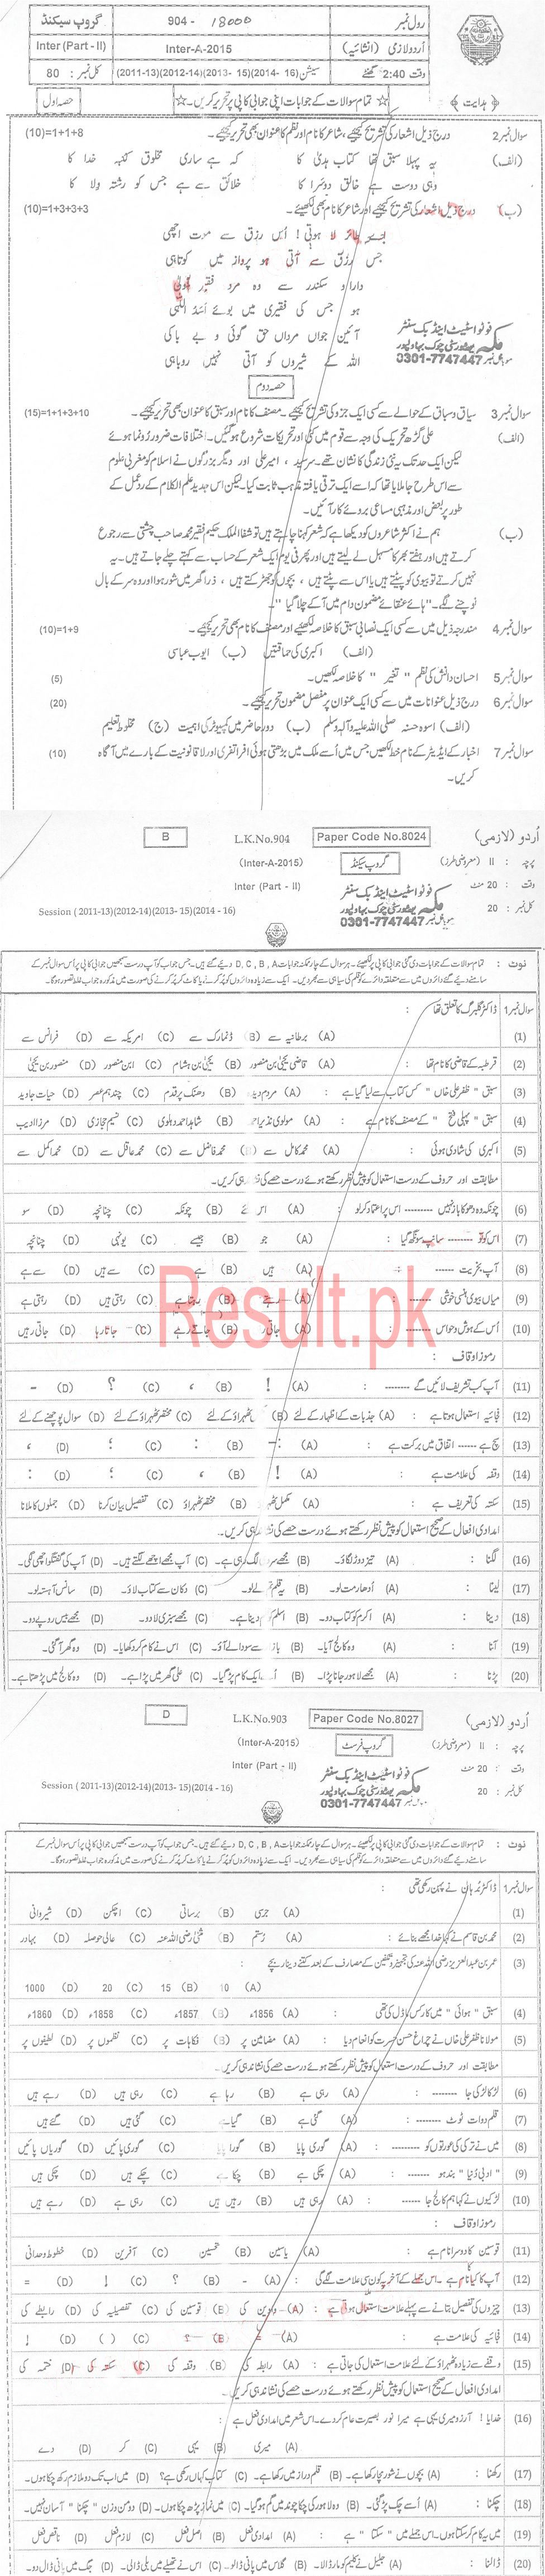 گروپ سیکنڈ
904 - 18000
رول نمبر
Inter (Part - II)
Inter-A-2015
اردو لازمی (انشائیہ)
کل نمبر : 80
سیشن (2011-13)(2012-14)(2013- 15)(2014- 16)
وقت 2:40 گھنٹے
﴿ ہدایت ﴾ ☆ تمام سوالات کے جوابات اپنی جوابی کاپی پر تحریر کریں۔ ☆ حصہ اول
سوال نمبر 2 درج ذیل اشعار کی تشریح کیجیے، شاعر کا نام اور نظم کا عنوان بھی تحریر کیجیے۔ (10)=1+1+8
(الف) یہ پہلا سبق تھا کتاب ہدیٰ کا کہ ہے ساری مخلوق کنبہ خدا کا
وہی دوست ہے خالق دوسرا کا خلائق سے ہے جس کو رشتہ ولا کا
(ب) درج ذیل اشعار کی تشریح کیجیے اور شاعر کا نام بھی لکھیے۔ (10)=1+3+3+3
اے طائر لا ہوتی! اُس رزق سے موت اچھی
جس رزق سے آتی ہو پرواز میں کوتاہی
دارا و سکندر سے وہ مرد فقیر اولیٰ
ہو جس کی فقیری میں بوئے اسد اللّٰہی
آئین جواں مرداں حق گوئی و بے باکی
اللہ کے شیروں کو آتی نہیں روباہی
فوٹو اسٹیٹ اینڈ بک سنٹر
مکہ یونیورسٹی چوک بہاولپور
موبائل نمبر 0301-7747447
حصہ دوم
سوال نمبر 3 سیاق و سباق کے حوالے سے کسی ایک جزو کی تشریح کیجیے۔ مصنف کا نام اور سبق کا عنوان بھی تحریر کیجیے۔ (15)=1+1+3+10
(الف) علی گڑھ تحریک کی وجہ سے قوم میں کئی اور تحریکات شروع ہو گئیں۔ اختلافات ضرور رونما ہوئے
لیکن ایک حد تک یہ نئی زندگی کا نشان تھے۔ سرسید ، امیر علی اور دیگر بزرگوں نے اسلام کو مغربی علوم
سے اس طرح جا ملایا تھا کہ اسے ایک ترقی یافتہ مذہب ثابت کیا۔ لیکن اس جدید علم الکلام کے رد عمل کے
طور پر بعض اور مذہبی مساعی بروئے کار آئیں۔
(ب) ہم نے اکثر شاعروں کو دیکھا ہے کہ شعر کہنا چاہتے ہیں تو شفا الملک حکیم فقیر محمد صاحب چشتی سے رجوع
کرتے ہیں اور ہفتے بھر کا مسہل لے لیتے ہیں اور پھر فی یوم ایک شعر کے حساب سے کہتے چلے جاتے ہیں۔ یہ
نہیں کرتے تو بیوی کو پیٹتے ہیں یا اس سے پٹتے ہیں ، بچوں کو جھڑکتے ہیں ، ذرا گھر میں شور ہوا اور وہ سر کے بال
نوچنے لگے۔ "ہائے عنقائے مضمون دام میں آ کے چلا گیا"۔
سوال نمبر 4 مندرجہ ذیل میں سے کسی ایک نصابی سبق کا خلاصہ لکھیے اور مصنف کا نام بھی تحریر کیجیے۔ (10)=1+9
(الف) اکبری کی حماقتیں (ب) ایوب عباسی
سوال نمبر 5 احسان دانش کی نظم " تغیر " کا خلاصہ لکھیں۔ (5)
سوال نمبر 6 درج ذیل عنوانات میں سے کسی ایک عنوان پر مفصل مضمون تحریر کیجیے۔ (20)
(الف) اسوہ حسنہ صلی اللہ علیہ و آلہ وسلم (ب) دور حاضر میں کمپیوٹر کی اہمیت (ج) مخلوط تعلیم
سوال نمبر 7 اخبار کے ایڈیٹر کے نام خط لکھیں جس میں اُسے ملک میں بڑھتی ہوئی افراتفری اور لا قانونیت کے بارے میں آگاہ (10)
کریں۔
B L.K.No.904 Paper Code No.8024 اردو (لازمی)
(Inter-A-2015) گروپ سیکنڈ پرچہ : II (معروضی طرز)
Inter (Part - II) وقت : 20 منٹ
Session ( 2011-13)(2012-14)(2013- 15)(2014 - 16) کل نمبر : 20
فوٹو اسٹیٹ اینڈ بک سنٹر
مکہ یونیورسٹی چوک بہاولپور
موبائل نمبر 0301-7747447
نوٹ : تمام سوالات کے جوابات دی گئی جوابی کاپی پر لکھیے۔ ہر سوال کے چار ممکنہ جوابات D, C, B, A دیے گئے ہیں۔ جس جواب کو آپ درست سمجھیں جوابی کاپی پر اُس سوال نمبر کے
سامنے دیے گئے دائروں میں سے متعلقہ دائرے کو قلم کی سیاہی سے بھر دیں۔ ایک سے زیادہ دائروں کو پُر کرنے یا کاٹ کر پُر کرنے کی صورت میں مذکورہ جواب غلط تصور ہو گا۔
سوال نمبر 1 ڈاکٹر گلبرگ کا تعلق تھا :
(1) (A) برطانیہ سے (B) ڈنمارک سے (C) امریکہ سے (D) فرانس سے
(2) قرطبہ کے قاضی کا نام تھا : (A) قاضی یحییٰ بن منصور (B) یحییٰ بن ہشام (C) ابن منصور (D) منصور بن یحییٰ
(3) سبق " ظفر علی خاں " کس کتاب سے لیا گیا ہے : (A) مردم دیدہ (B) دھنک پر قدم (C) چند ہم عصر (D) حیات جاوید
(4) سبق " پہلی فتح " کے مصنف کا نام ہے : (A) مولوی نذیر احمد (B) شاہد احمد دہلوی (C) نسیم حجازی (D) مرزا ادیب
(5) اکبری کی شادی ہوئی : (A) محمد کامل سے (B) محمد فاضل سے (C) محمد عاقل سے (D) محمد اکمل سے
مطابقت اور حروف کے درست استعمال کو پیش نظر رکھتے ہوئے درست حصے کی نشاندہی کریں۔
(6) چونکہ وہ دھوکا باز نہیں -------- اس پر اعتماد کر لو : (A) اس لیے (B) چونکہ (C) چنانچہ (D) سو
(7) اس کو تو -------- سانپ سونگھ گیا : (A) جو (B) جیسے (C) یونہی (D) چنانچہ
(8) آپ بخیریت ------ : (A) ہیں (B) ہے (C) سے ہیں (D) سے ہے
(9) میاں بیوی ہنسی خوشی ------- : (A) رہتے (B) رہتا ہے (C) رہتی ہیں (D) رہتی ہے
(10) اُس کے ہوش و حواس ------- : (A) جاتی رہی (B) جاتے رہے (C) جاتا رہا (D) جاتی رہیں
رموز اوقاف :
(11) آپ کب تشریف لائیں گے -------- : (A) ! (B) ، (C) ؟ (D) -
(12) فجائیہ استعمال ہوتا ہے : (A) جذبات کے اظہار کے لئے (B) ٹھہراؤ کے لئے (C) مختصر ٹھہراؤ کے لئے (D) سوال پوچھنے کے لئے
(13) سچ ہے ------ اتفاق میں برکت ہے : (A) :- (B) : (C) ؛ (D) ،
(14) وقفہ کی علامت ہے : (A) ! (B) ، (C) ؛ (D) :
(15) سکتہ کی تعریف ہے : (A) مکمل ٹھہراؤ (B) مختصر ٹھہراؤ (C) تفصیل بیان کرنا (D) جملوں کا ملانا
امدادی افعال کے صحیح استعمال کو پیش نظر رکھتے ہوئے درست حصے کی نشاندہی کریں۔
(16) لگنا : (A) تیز دوڑ لگاؤ۔ (B) مجھے سردی لگ رہی ہے۔ (C) آپ مجھے اچھے لگتے ہیں۔ (D) آپ کی گفتگو اچھی لگی۔
(17) لینا : (A) اُدھار مت لو۔ (B) یہ قلم لے لو۔ (C) دکان سے کتاب لاؤ۔ (D) سانس آہستہ لو۔
(18) دینا : (A) اکرم کو کتاب دو۔ (B) اسلم کو دینا ہے۔ (C) مجھے سبزی لا دو۔ (D) مجھے بیس روپے دو۔
(19) آنا : (A) وہ کالج آیا۔ (B) بازار سے سودا لے آؤ۔ (C) اس نے کام کر دکھایا۔ (D) وہ گھر آ گئی۔
(20) پڑنا : (A) مجھے لاہور جانا پڑا۔ (B) اُسے ایک کام پڑ گیا۔ (C) علی گھر میں پڑا ہے۔ (D) وہ کالج میں پڑھتا ہے۔
D L.K.No.903 Paper Code No.8027 اردو (لازمی)
(Inter-A-2015) گروپ فرسٹ پرچہ : II (معروضی طرز)
Inter (Part - II) وقت : 20 منٹ
Session ( 2011-13)(2012-14)(2013- 15)(2014 - 16) کل نمبر : 20
فوٹو اسٹیٹ اینڈ بک سنٹر
مکہ یونیورسٹی چوک بہاولپور
موبائل نمبر 0301-7747447
نوٹ : تمام سوالات کے جوابات دی گئی جوابی کاپی پر لکھیے۔ ہر سوال کے چار ممکنہ جوابات D, C, B, A دیے گئے ہیں۔ جس جواب کو آپ درست سمجھیں جوابی کاپی پر اُس سوال نمبر کے
سامنے دیے گئے دائروں میں سے متعلقہ دائرے کو قلم کی سیاہی سے بھر دیں۔ ایک سے زیادہ دائروں کو پُر کرنے یا کاٹ کر پُر کرنے کی صورت میں مذکورہ جواب غلط تصور ہو گا۔
سوال نمبر 1 ڈاکٹر نے پہن رکھی تھی :
(1) (A) جرسی (B) برساتی (C) اچکن (D) شیروانی
(2) محمد بن قاسم نے کہا خدا مجھے بنائے : (A) رستم (B) مثنیٰ رضی اللہ عنہ (C) عالی حوصلہ (D) بہادر
(3) عمر بن عبدالعزیز رضی اللہ عنہ کی تجہیز و تکفین کے مصارف کے بعد کتنے دینار بچے :
(A) 10 (B) 15 (C) 20 (D) 1000
(4) سبق " ہوائی " میں کارکس ماڈل کی تھی : (A) 1856ء (B) 1857ء (C) 1858ء (D) 1860ء
(5) مولانا ظفر علی خاں نے چراغ حسن حسرت کو انعام دیا : (A) مضامین پر (B) فکاہات پر (C) نظموں پر (D) لطیفوں پر
مطابقت اور حروف کے درست استعمال کو پیش نظر رکھتے ہوئے درست حصے کی نشاندہی کریں۔
(6) لڑکا لڑکی جا -------- : (A) رہی ہے (B) رہا ہے (C) رہی ہیں (D) رہے ہیں
(7) قلم دوات ٹوٹ ------- : (A) گئی ہے (B) گیا ہے (C) گئی ہیں (D) گئے ہیں
(8) میں نے ترکی کی عورتوں کو -------- : (A) گوری پایا (B) گورا پایا (C) گوری پائیں (D) گوریاں پائیں
(9) " ادبی دُنیا " بند ہو ------- : (A) چکی ہے (B) چکا ہے (C) چکے ہیں (D) چکی ہیں
(10) لڑکیوں نے کہا ہم کالج جا ------ : (A) رہی ہیں (B) رہیں ہیں (C) رہی ہے (D) رہے ہیں
رموز اوقاف :
(11) قوسین کا دوسرا نام ہے : (A) یاسین (B) تحسین (C) آفرین (D) خطوط وحدانی
(12) آپ کا کیا نام ہے ۔ اس جملے کے آخر پر کون سی علامت لگے گی : (A) - (B) ؟ (C) ! (D) =
(13) چیزوں کی تفصیل بتانے سے پہلے علامت استعمال ہوتی ہے : (A) واوین کی (B) قوسین کی (C) تفصیلیہ کی (D) رابطے کی
(14) فجائیہ کی علامت ہے : (A) = (B) ؟ (C) ( ) (D) !
(15) وقفے سے زیادہ ٹھہراؤ کے لئے علامت استعمال کی جاتی ہے : (A) رابطہ کی (B) وقفہ کی (C) سکتہ کی (D) ختمہ کی
امدادی افعال کے صحیح استعمال کو پیش نظر رکھتے ہوئے درست حصے کی نشاندہی کریں۔
(16) خدایا ! آرزو میری یہی ہے میرا نور بصیرت عام کر دے۔ اس شعر میں امدادی فعل ہے :
(A) میری (B) یہی (C) کر (D) دے
(17) رکھنا : (A) بچوں نے شور مچا رکھا ہے۔ (B) قلم دراز میں رکھا ہے۔ (C) کتاب کہاں رکھی ہے؟ (D) میں اب تک دو ملازم رکھ چکا ہوں۔
(18) چکنا : (A) اُسے چک پڑ گئی۔ (B) وہ لاہور کی چکا چوند میں گم ہو گیا۔ (C) میں نماز پڑھ چکا ہوں۔ (D) دو من وزن " چکنا " آسان نہیں۔
(19) میں یہ کام کر سکتا ہوں۔ اس جملے میں " سکتا " ہے : (A) امدادی فعل (B) اصل فعل (C) لازم فعل (D) ناقص فعل
(20) ڈالنا : (A) جلیل نے کلیم کو مار ڈالا۔ (B) گلاس میں پانی ڈالو۔ (C) اس نے تھیلے میں بلی ڈالی۔ (D) جگ میں پانی ڈال دو۔
Result.pk